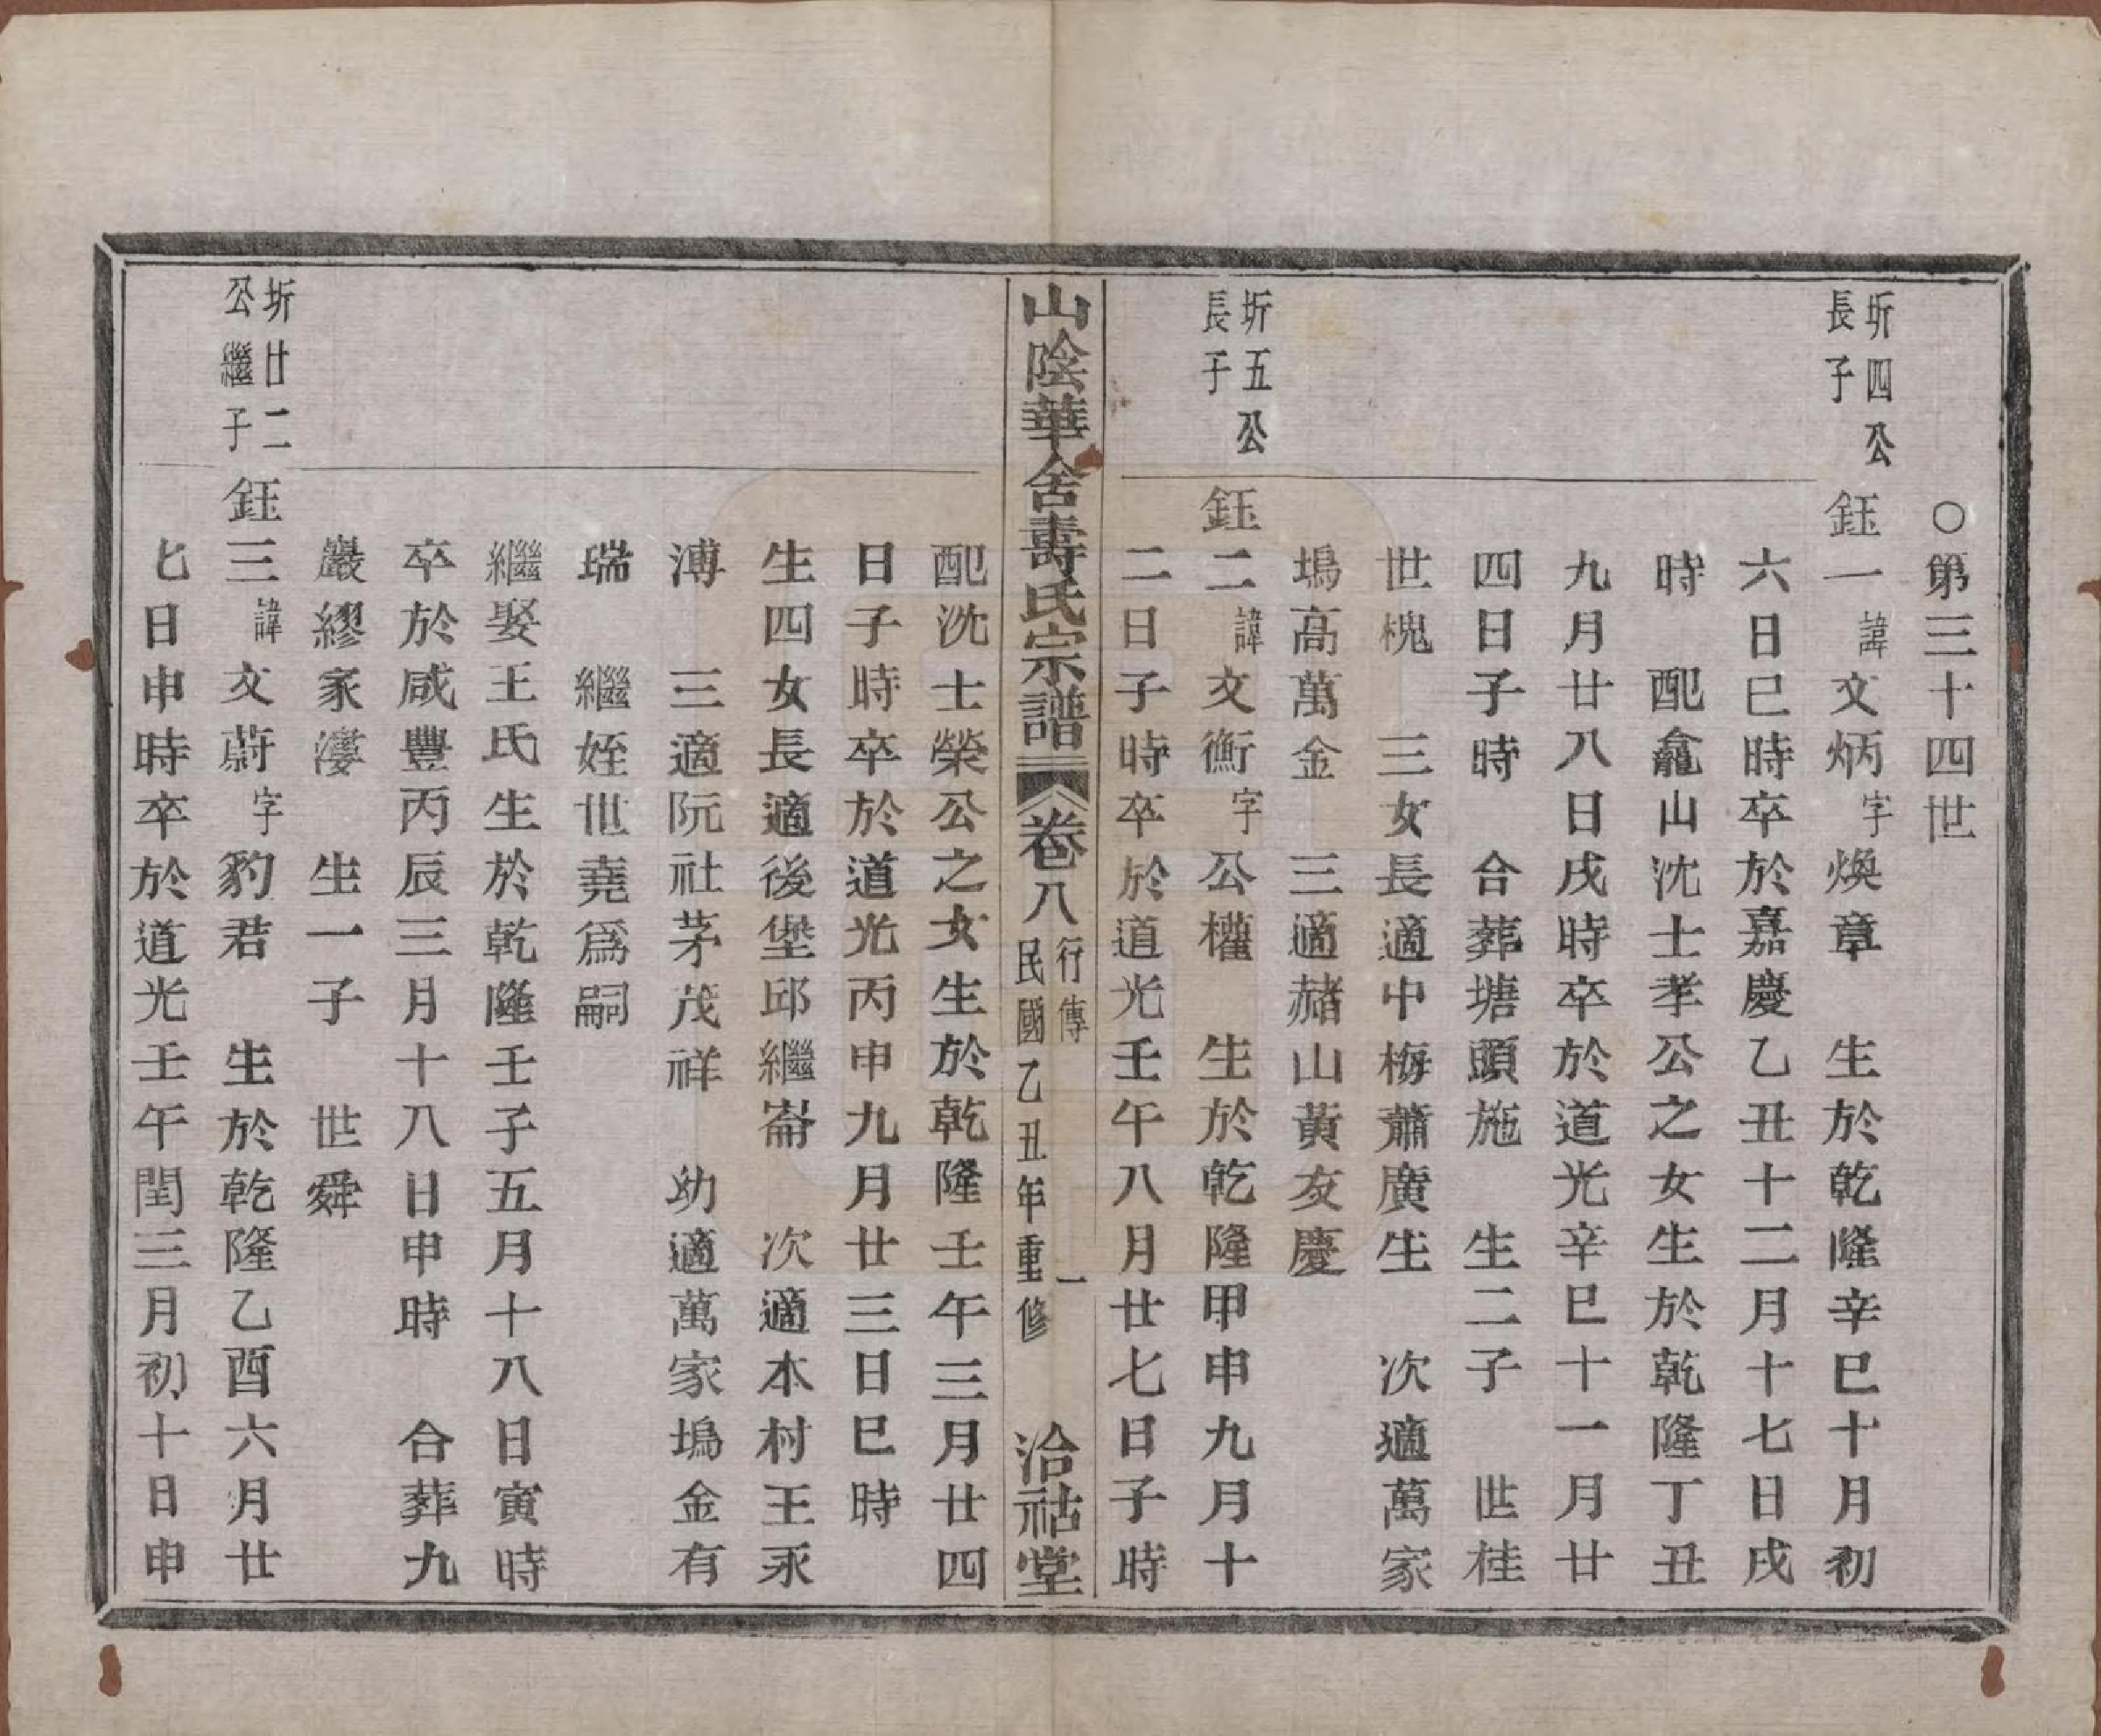 ○第三十四世
圻四公長子
鈺一諱文炳字煥章　生於乾隆辛巳十月初
六日巳時卒於嘉慶乙丑十二月十七日戌
時　配龕山沈士孝公之女生於乾隆丁丑
九月廿八日戌時卒於道光辛巳十一月廿
四日子時　合葬塘頭施　生二子　世桂
世槐　三女長適中梅蕭廣生　次適萬家
塢高萬金　三適赭山黃友慶
圻五公長子
鈺二諱文衡字公權　生於乾隆甲申九月十
二日子時卒於道光壬午八月廿七日子時
山陰華舍壽氏宗譜　卷八　行傳　一　民國乙丑年重修　洽祜堂
配沈士榮公之女生於乾隆壬午三月廿四
日子時卒於道光丙申九月廿三日巳時
生四女長適後堡邱繼崙　次適本村王永
溥　三適阮社茅茂祥　幼適萬家塢金有
瑞　繼姪世堯爲嗣
繼娶王氏生於乾隆壬子五月十八日寅時
卒於咸豐丙辰三月十八日申時　合葬九
巖繆家漊　生一子　世舜
圻廿二公繼子
鈺三諱文蔚字豹君　生於乾隆乙酉六月廿
七日申時卒於道光壬午閏三月初十日申